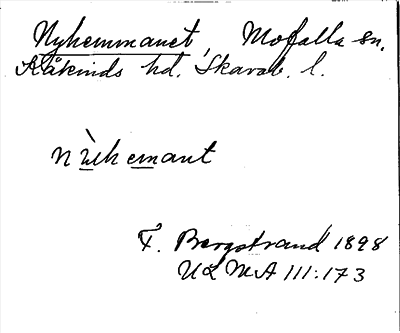 Nyhemmanet, Mofalla sn.
Kåkinds hd. Skarab. l.
F. Bergstrand 1898
ULMA 111:173